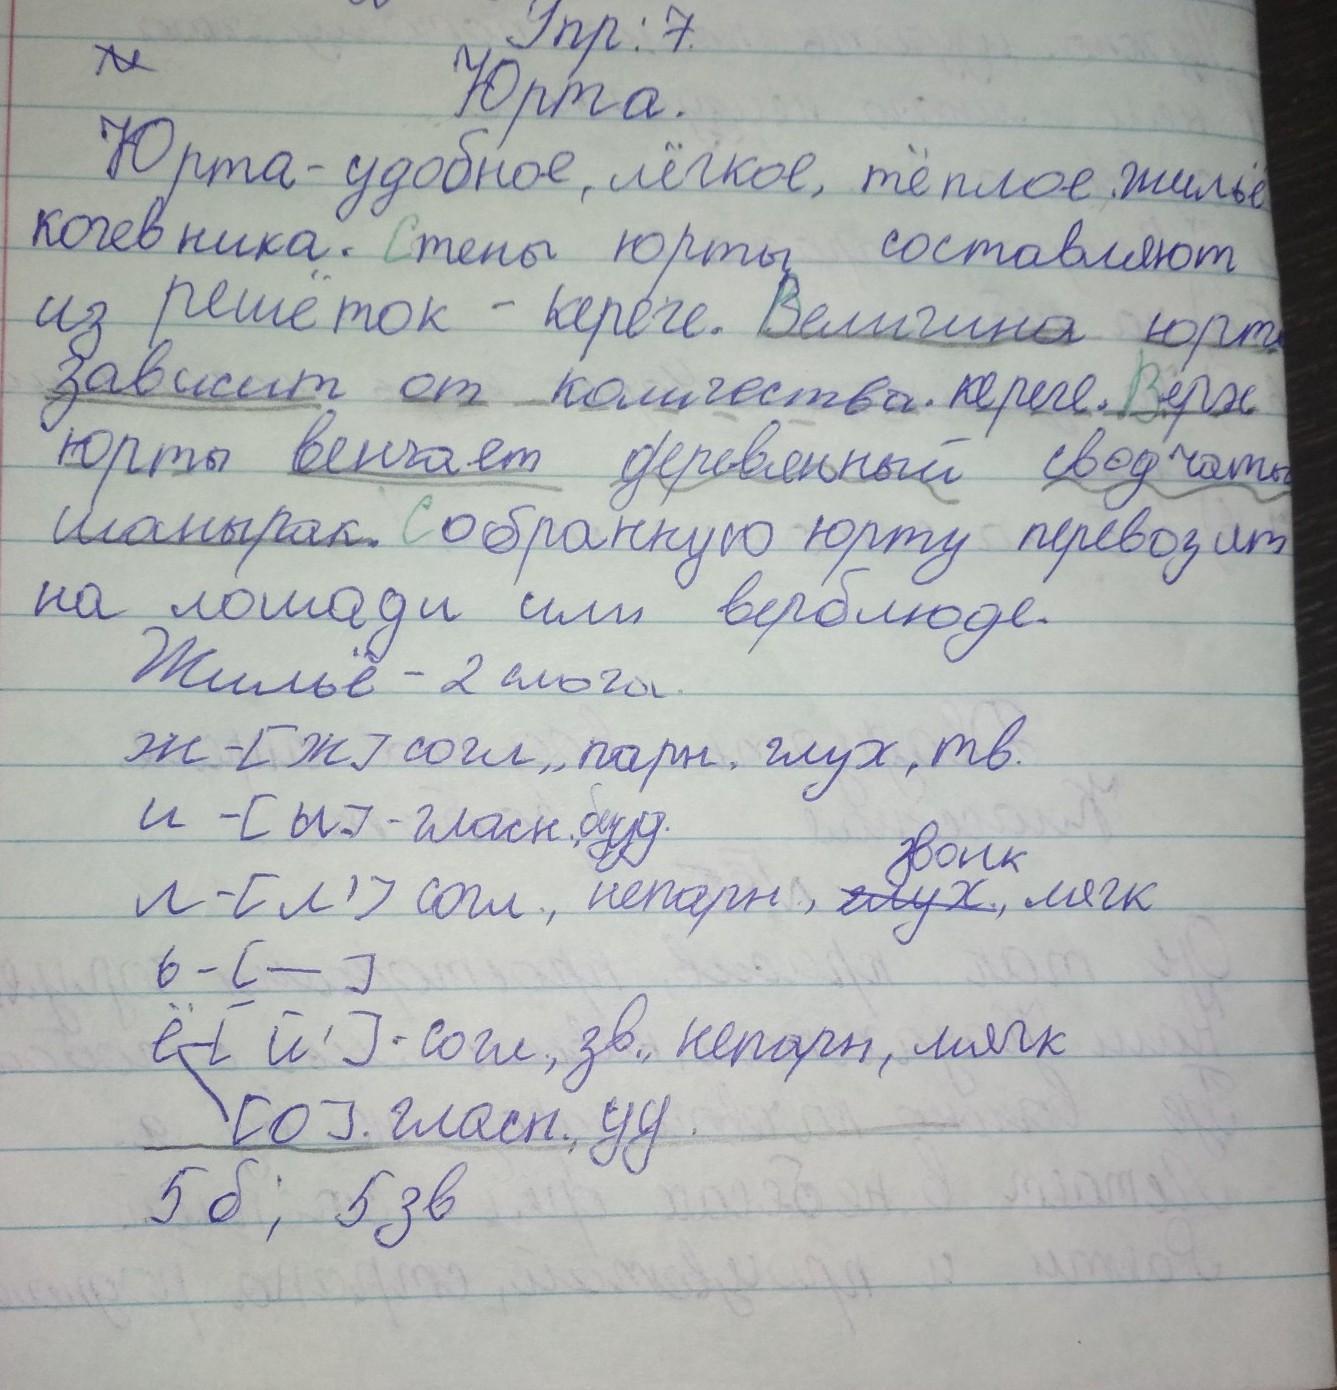 Упр: 7.
Юрта.
Юрта - удобное, лёгкое, тёплое жильё
кочевника. Стены юрты составляют
из решёток - кереге. Величина юрты
зависит от количества кереге. Верх
юрты венчает деревянный сводчаты
шанырак. Собранную юрту перевозят
на лошади или верблюде.
Жильё - 2 слога.
ж - [ж] согл., парн. глух, тв.
и - [ы] - гласн., безуд.
л - [л'] согл., непарн., звонк, мягк
ь - [—]
ё - [й'] - согл., зв., непарн, мягк
[о]. гласн., уд.
5 б; 5 зв